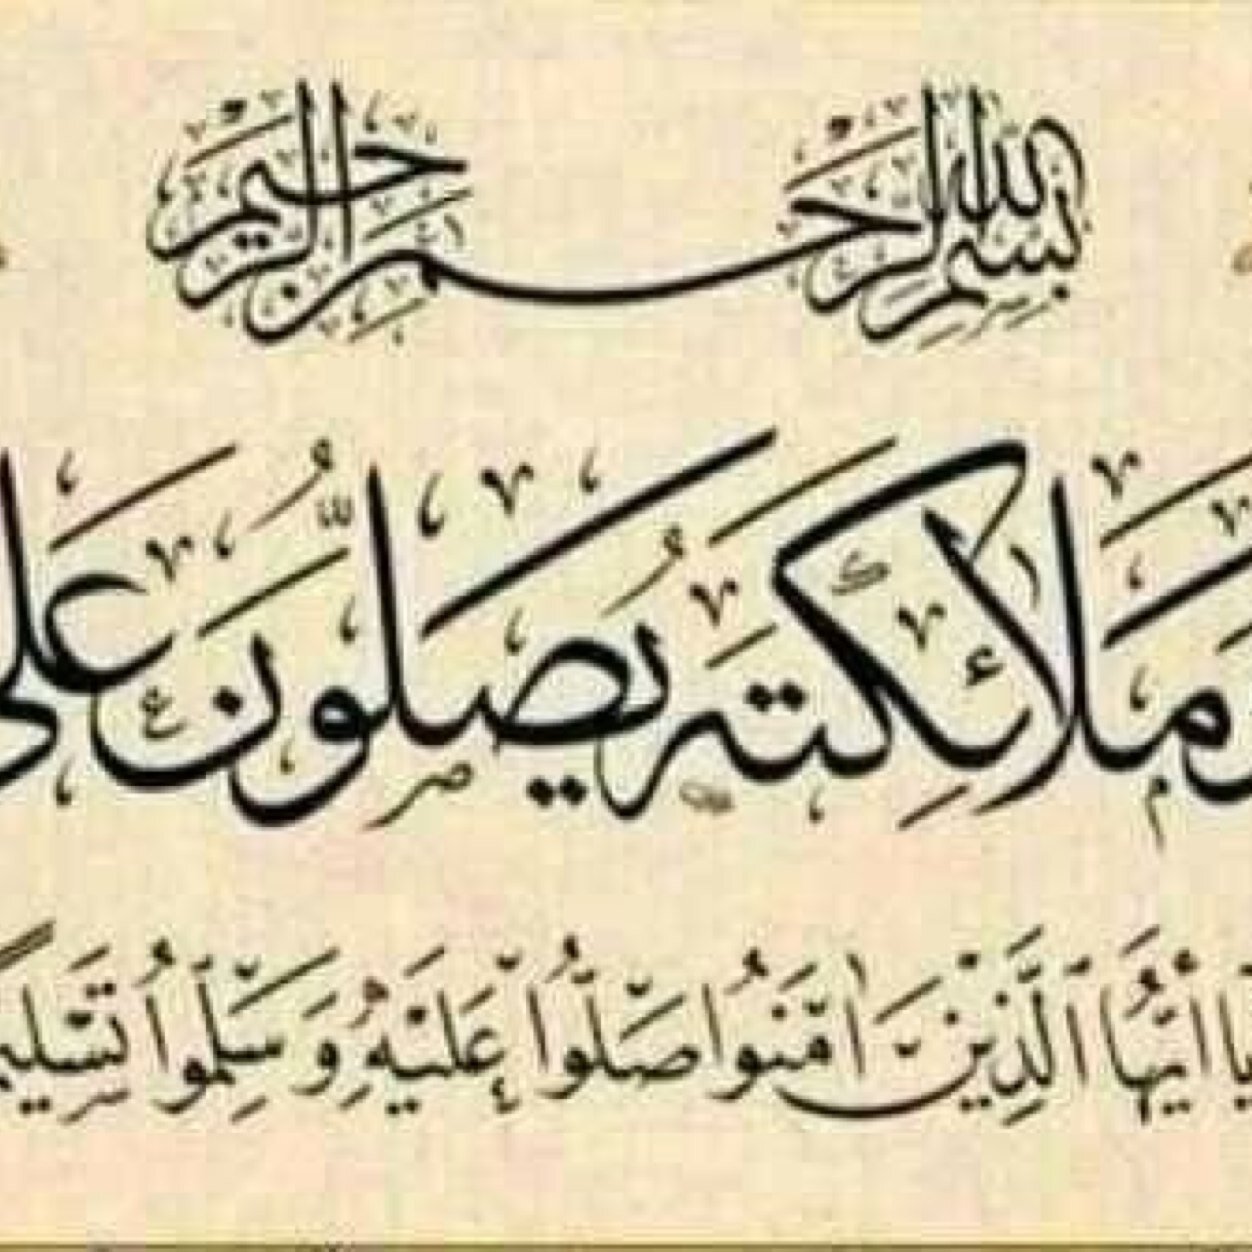 بِسْمِ اللهِ الرَّحْمٰنِ الرَّحِيمِ
وَمَلَائِكَتَهُ يُصَلُّونَ عَلَى
يَا أَيُّهَا ٱلَّذِيْنَ اٰمَنُوا صَلُّوا عَلَيْهِ وَسَلِّمُوا